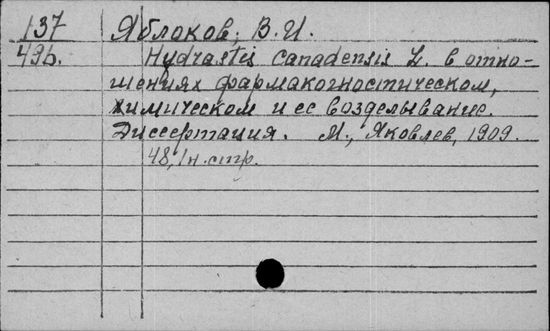 137 Яблоков, В.И.
49б. Hydrastis canadensis L. в отно-
шениях фармакогностическом,
химическом и ее возделывание.
Диссертация. М., Яковлев, 1909.
48, 1 н. стр.